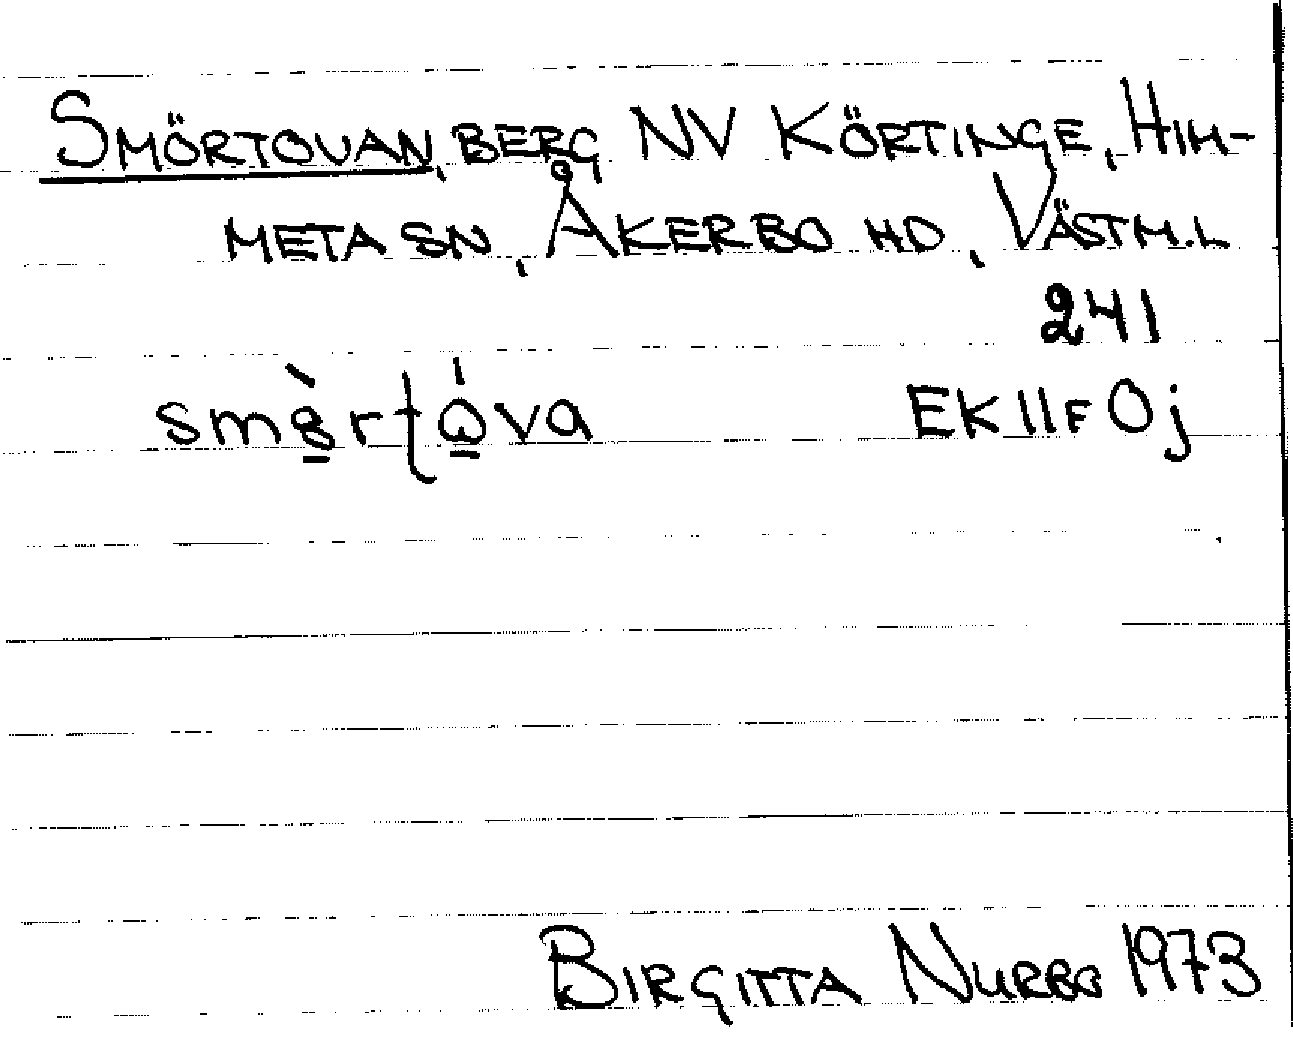 SMÖRTOVAN, BERG NV KÖRTINGE, HIM-
META SN, ÅKERBO HD, VÄSTM.L
241
EK 11F 0j
BIRGITTA NURBO 1973